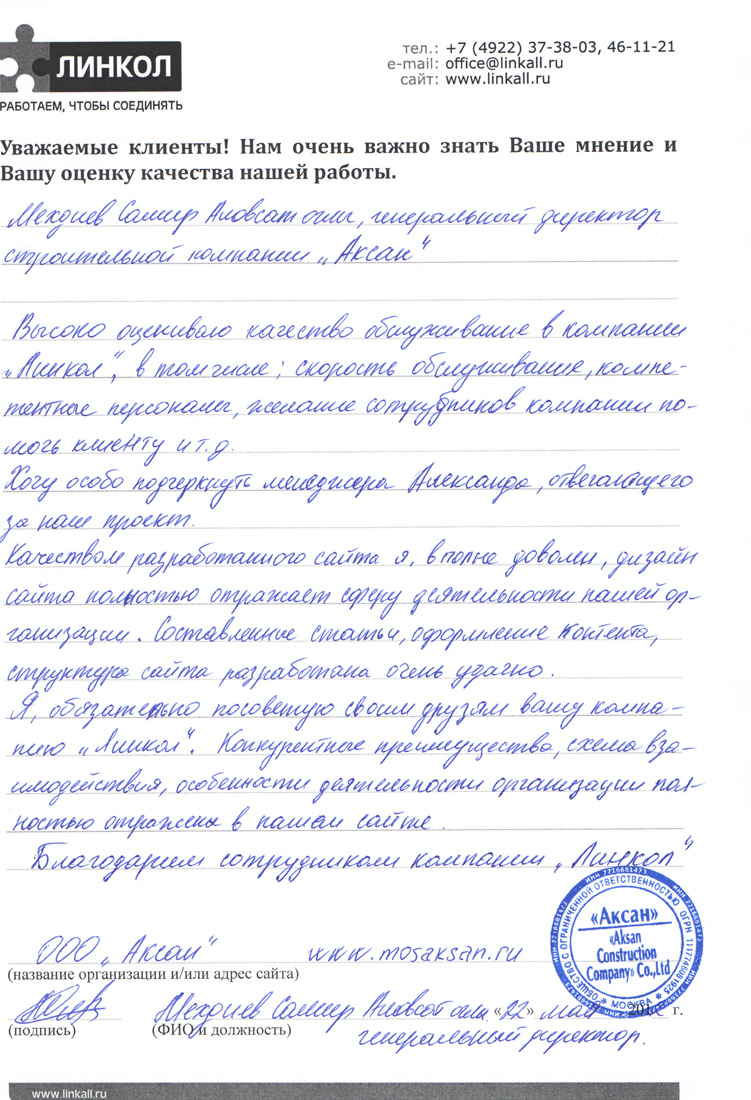 ЛИНКОЛ
РАБОТАЕМ, ЧТОБЫ СОЕДИНЯТЬ
тел.: +7 (4922) 37-38-03, 46-11-21
e-mail: office@linkall.ru
сайт: www.linkall.ru
Уважаемые клиенты! Нам очень важно знать Ваше мнение и
Вашу оценку качества нашей работы.
Мехдиев Самир Аловсат оглы, генеральный директор
строительной компании „Аксан“
Высоко оцениваю качество обслуживание в компании
„Линкол“, в том числе: скорость обслуживание, компе-
тентное персонала, желание сотрудников компании по-
мочь клиенту и т.д.
Хочу особо подчеркнуть менеджера Александа, отвечающего
за наш проект.
Качеством разработанного сайта я, вполне доволен, дизайн
сайта полностью отражает сферу деятельности нашей ор-
ганизации. Составленные статьи, оформление контента,
структура сайта разработана очень удачно.
Я, обязательно посоветую своим друзьям вашу компа-
нию „Линкол“. Конкурентные преимущества, схема вза-
имодействия, особенности деятельности организации пол-
ностью отражены в нашем сайте.
Благодарим сотрудникам компании „Линкол“
ООО „Аксан“ www.mosaksan.ru
(название организации и/или адрес сайта)
Мехдиев Самир Аловсат оглы «22» мая 201 г.
(подпись) (ФИО и должность) генеральный директор.
ОБЩЕСТВО С ОГРАНИЧЕННОЙ ОТВЕТСТВЕННОСТЬЮ
ИНН 7716681473
«Аксан»
«Aksan
Construction
Company» Co.,Ltd
МОСКВА
www.linkall.ru